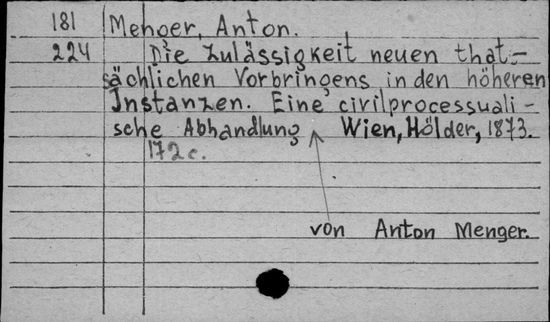 181 Menger, Anton.
224 Die Zulässigkeit neuen that-
sächlichen Vorbringens in den höheren
Instanzen. Eine civilprocessuali-
sche Abhandlung Wien, Hölder, 1873.
172 c.
von Anton Menger.